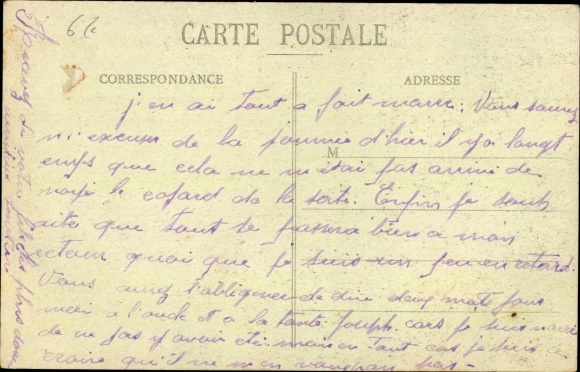 62
CARTE POSTALE
CORRESPONDANCE
ADRESSE
M
j'en ai tout a fait marre. Vous saurez
m'excuser de la journée d'hier il y a longt
emps que cela ne m'étai pas arrivé de
le cafard de la sorte. Enfin je souh
aite que tout se passera bien a mon
retour quoi que je suis un peu en retard.
Vous aurez l'obligence de dire deux mots pour
moi a l'oncle et a la tante Joseph. cars je suis navré
de ne pas y avoir été mais en tout cas je suis a
croire qu'il ne m'en voudras pas -
Recevez de votre fils les plus doux